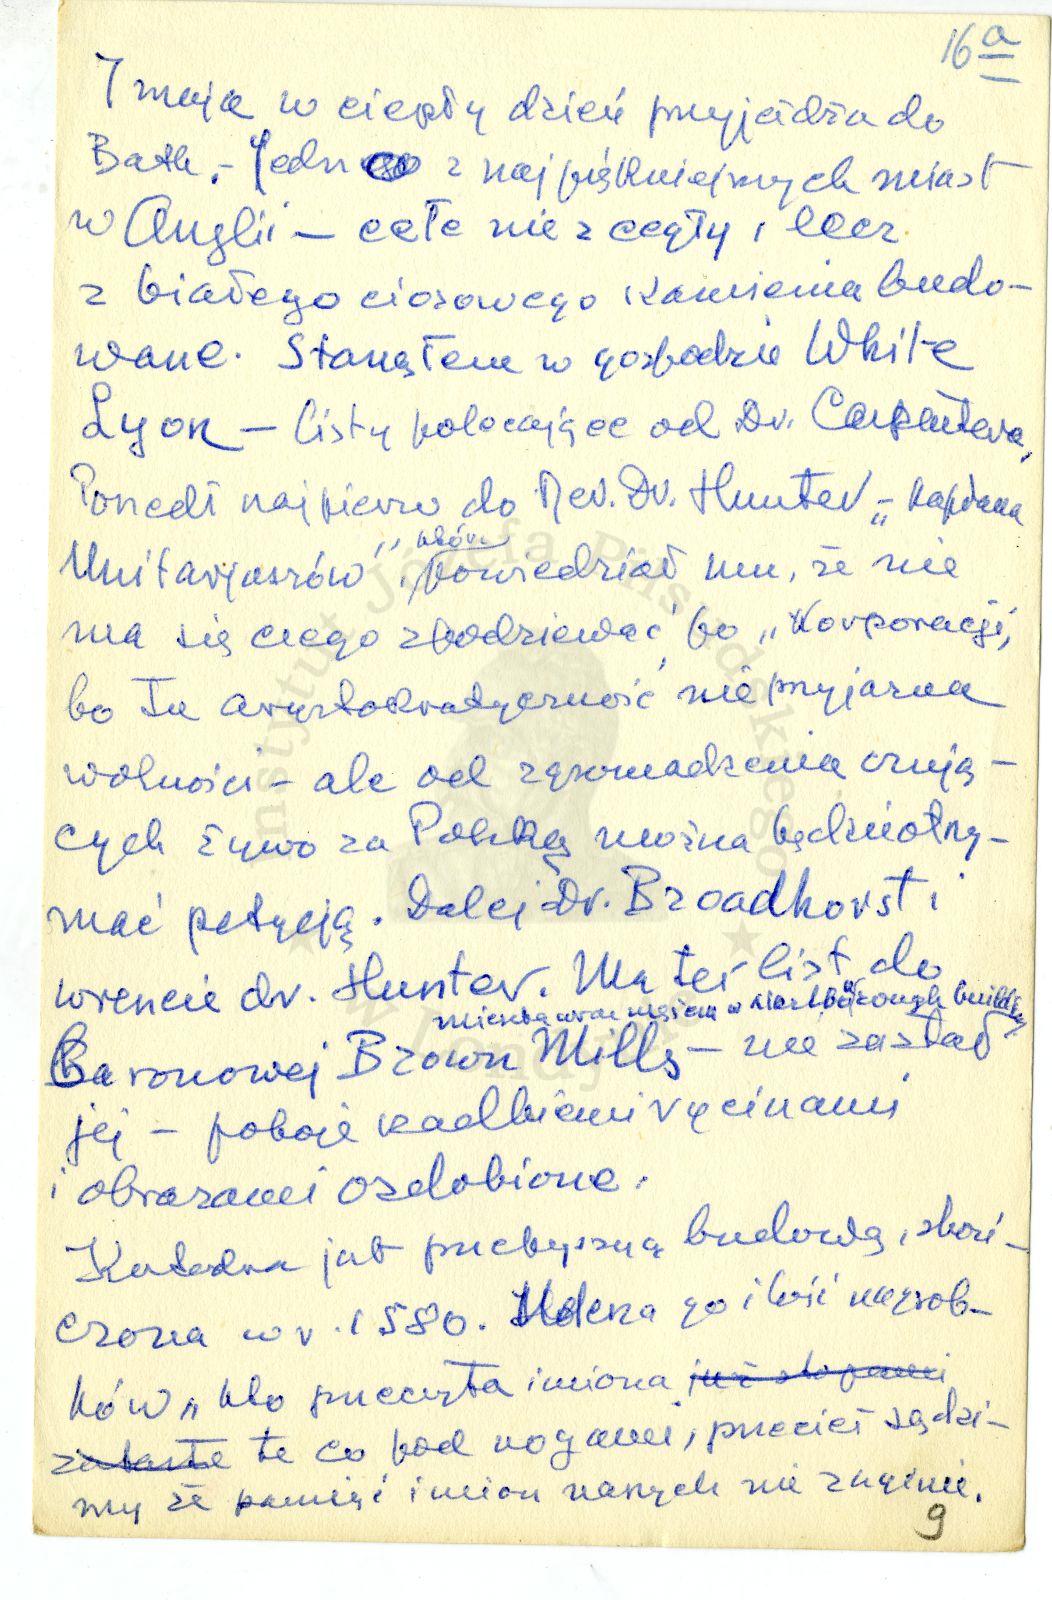 16 a
7 maja w ciepły dzień przyjeżdża do
Bath. – Jedno z najpiękniejszych miast
w Anglii – całe nie z cegły, lecz
z białego ciosowego kamienia budo-
wane. Stanąłem w gospodzie White
Lyon – listy polecające od Dr. Carpentera,
Poszedł najpierw do Rev. Dr. Hunter „ kapłana
Unitarjuszów", któr. powiedział mu, że nie
ma się czego spodziewać bo „Korporacji,
bo tu arystokratyczność nieprzyjazna
wolności – ale od zgromadzenia czują-
cych żywo za Polską można będzie otrzy-
mać petycją. Dalej Dr. Broadhorst i
wreszcie dr. Hunter. Ma też list do
Baronowej Brown Mills – nie zastał
mieszka wraz mężem w buildings
jej – pokoje rycinami
i obrazami ozdobione.
Katedra jest przepyszną budową, skoń-
czona w r. 1580. Uderza go ilość nagrob-
ków „kto przeczyta imiona już stopami
zatarte te co pod nogami, przecież sądzi-
my że pamięć imion naszych nie zaginie.
9
Instytut Józefa Piłsudskiego
w Londynie